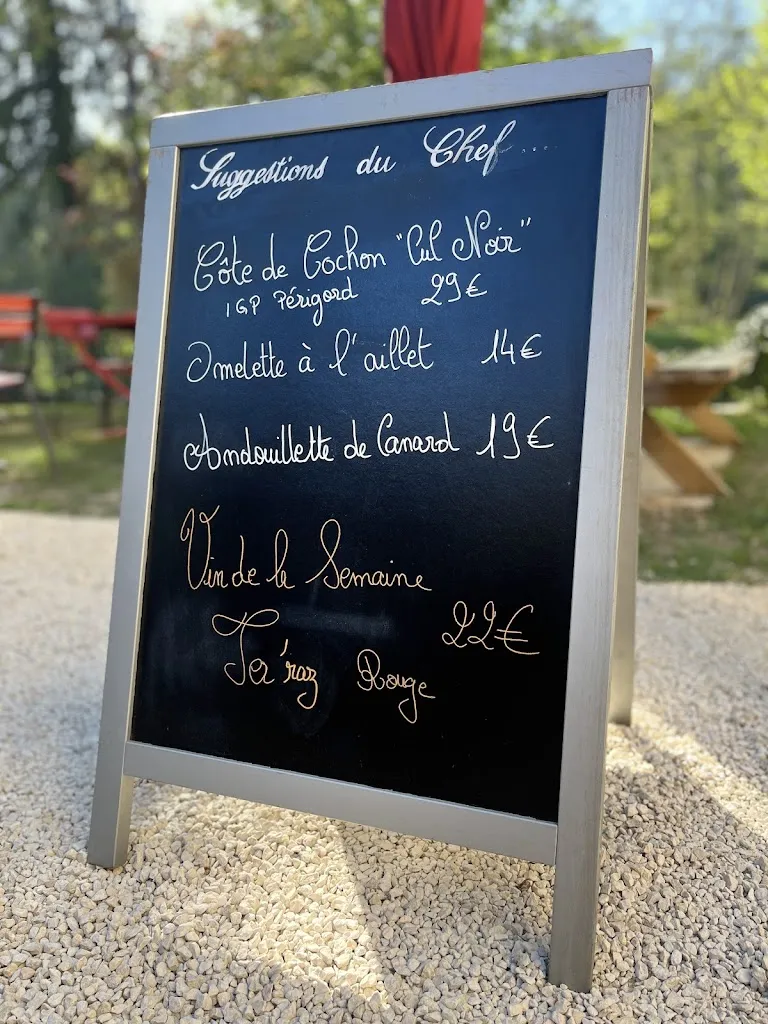 Suggestions du Chef...
Côte de Cochon "Cul Noir"
IGP Périgord 29€
Omelette à l'aillet 14€
Andouillette de Canard 19€
Vin de la Semaine
22€
Ter'raz Rouge